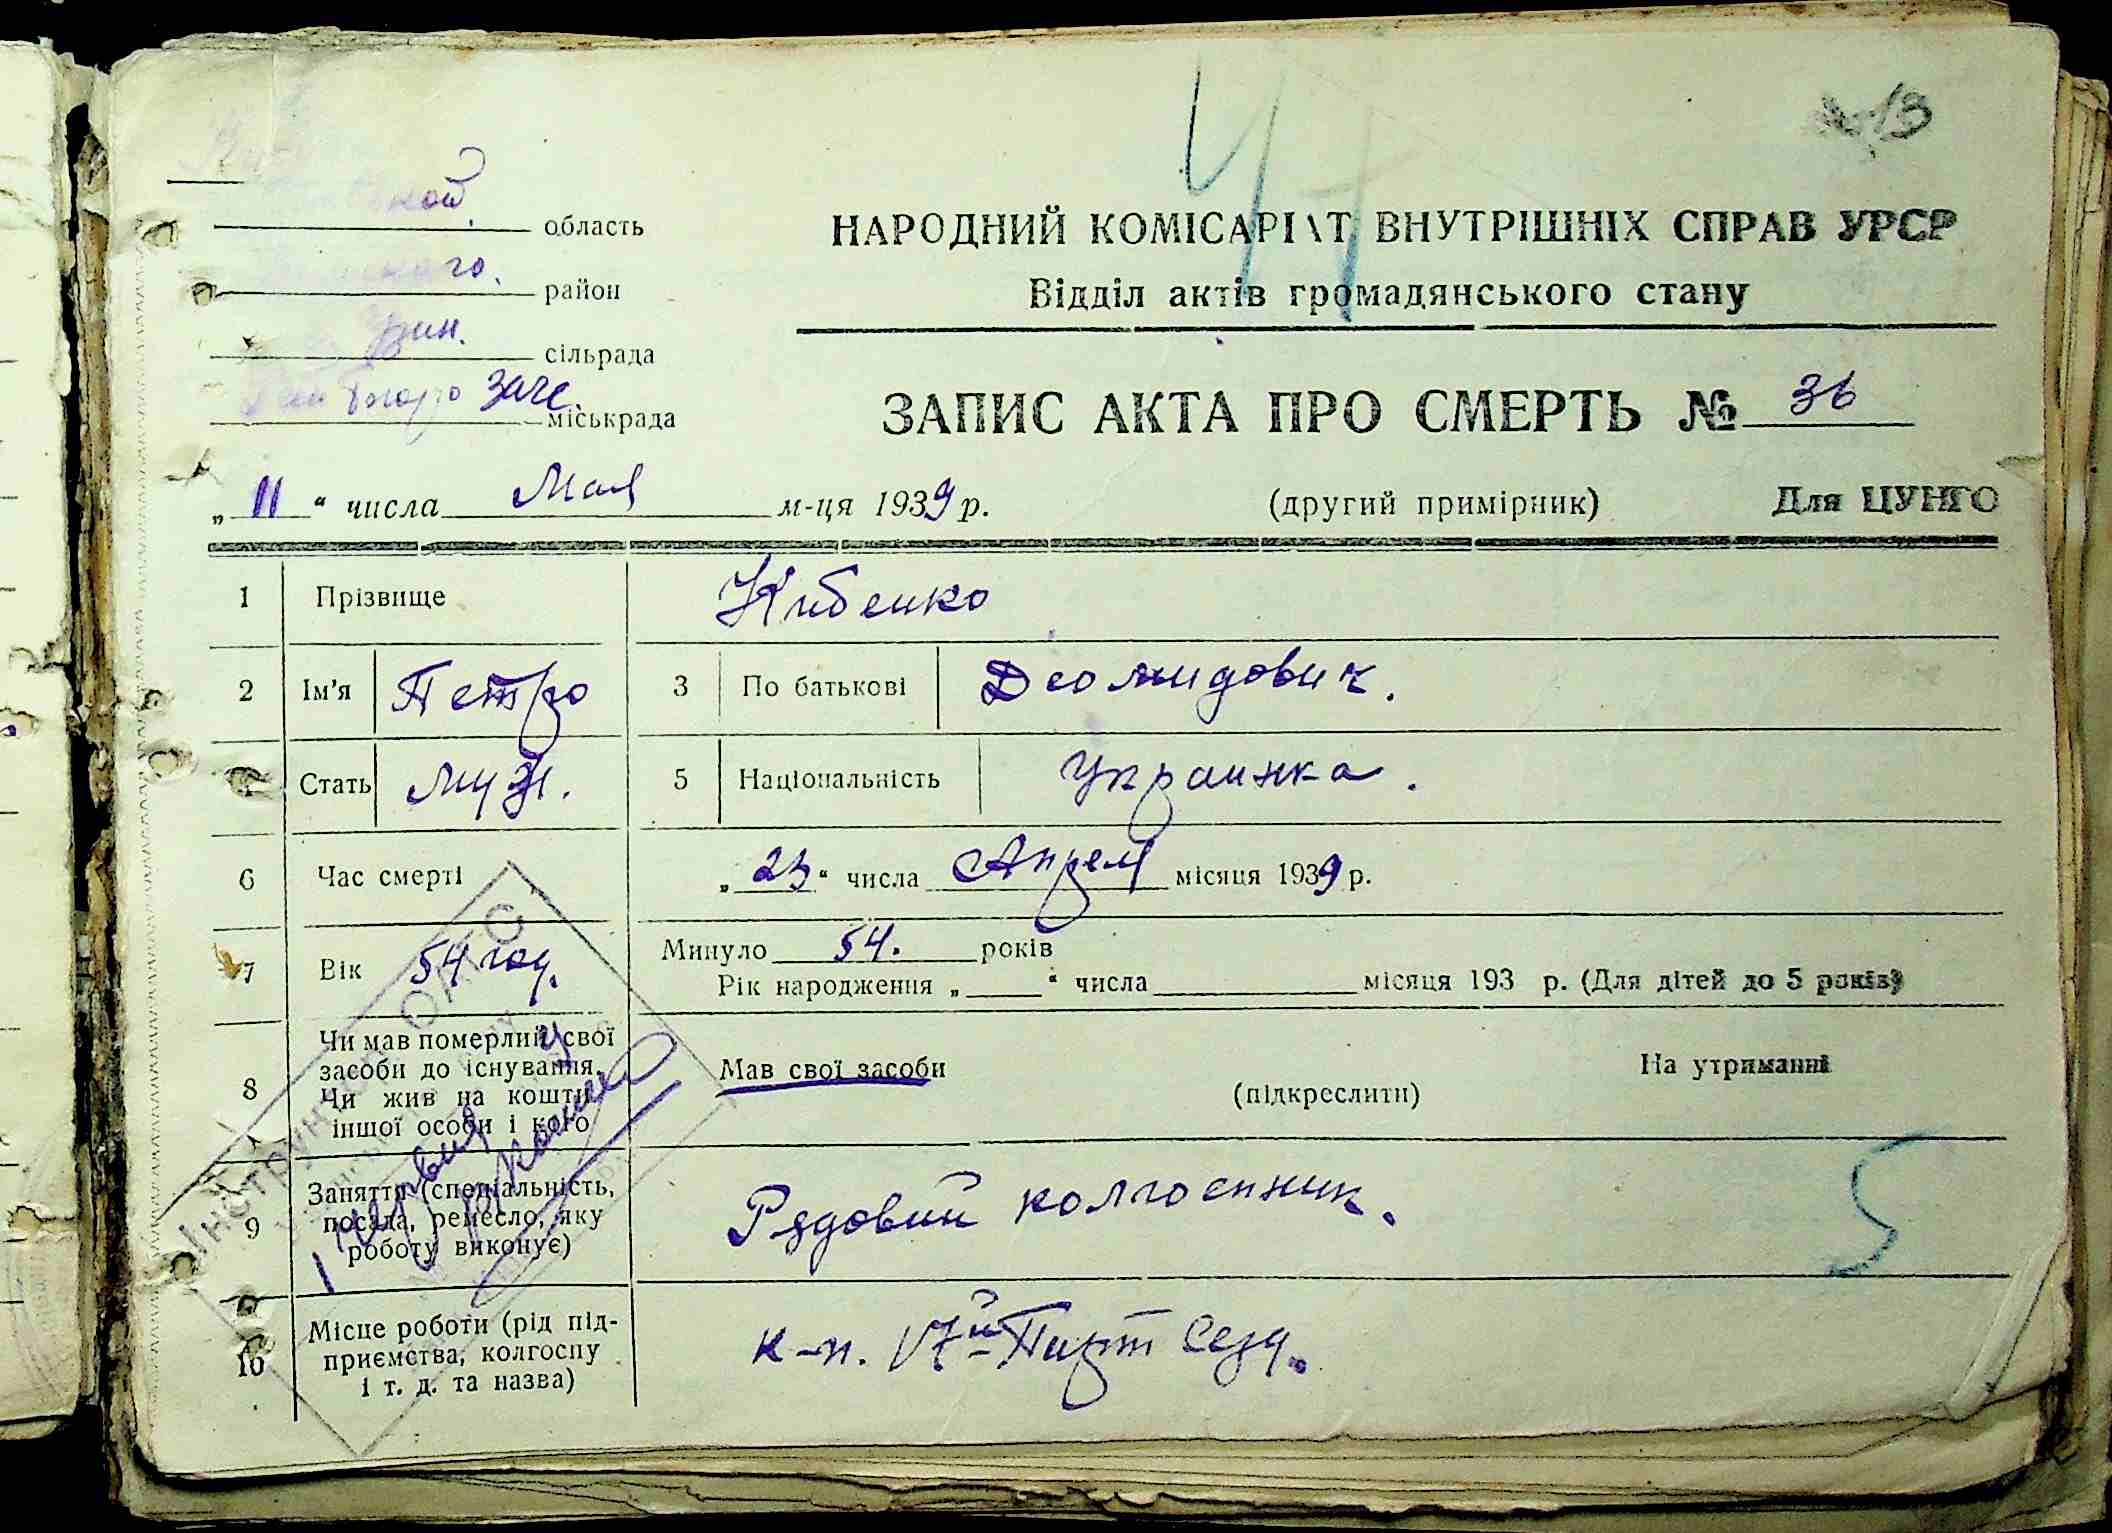 13
47
ской. область
ского. район
рин. сільрада
бюро загс. міськрада
НАРОДНИЙ КОМІСАРІАТ ВНУТРІШНІХ СПРАВ УРСР
Відділ актів громадянського стану
ЗАПИС АКТА ПРО СМЕРТЬ № 36
„ 11 “ числа Мая м-ця 1939 р. (другий примірник) Для ЦУНГО
1 Прізвище Кибенко
2 Ім'я Петро 3 По батькові Деомидович.
Стать муж. 5 Національність Украинка.
6 Час смерті „ 23 “ числа Апреля місяця 1939 р.
7 Вік 54 год. Минуло 54. років
Рік народження „ “ числа місяця 193 р. (Для дітей до 5 років)
8 Чи мав померлий свої
засоби до існування.
Чи жив на кошти
іншої особи і кого
Мав свої засоби (підкреслити) На утриманні
9 Заняття (спеціальність,
посада, ремесло, яку
роботу виконує)
Рядовий колгоспник.
5
10 Місце роботи (рід під-
приємства, колгоспу
і т. д. та назва)
к-п. 17й Парт сезд.
Інструктор ОАГС